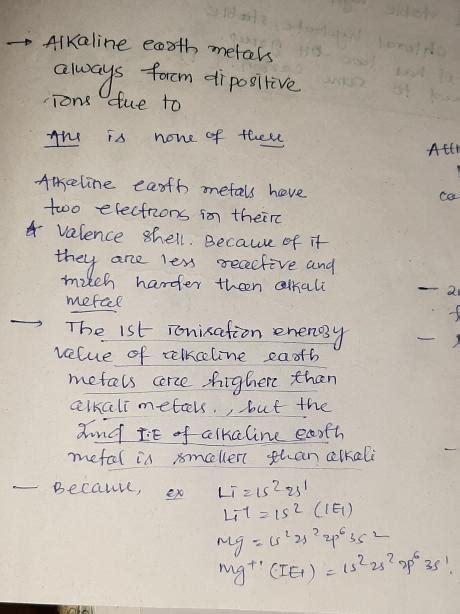 → Alkaline earth metals
always form dipositive
ions due to
Ans is none of these
Alkaline earth metals have
two electrons in their
valence shell. Because of it
they are less reactive and
much harder than alkali
metal
→ The 1st ionisation energy
value of alkaline earth
metals are higher than
alkali metals., but the
2nd I.E of alkaline earth
metal is smaller than alkali
— Because, ex Li = 1s² 2s¹
Li⁺ = 1s² (IE₁)
Mg = 1s² 2s² 2p⁶ 3s²
Mg⁺¹ (IE₁) = 1s² 2s² 2p⁶ 3s¹.
Att
ca